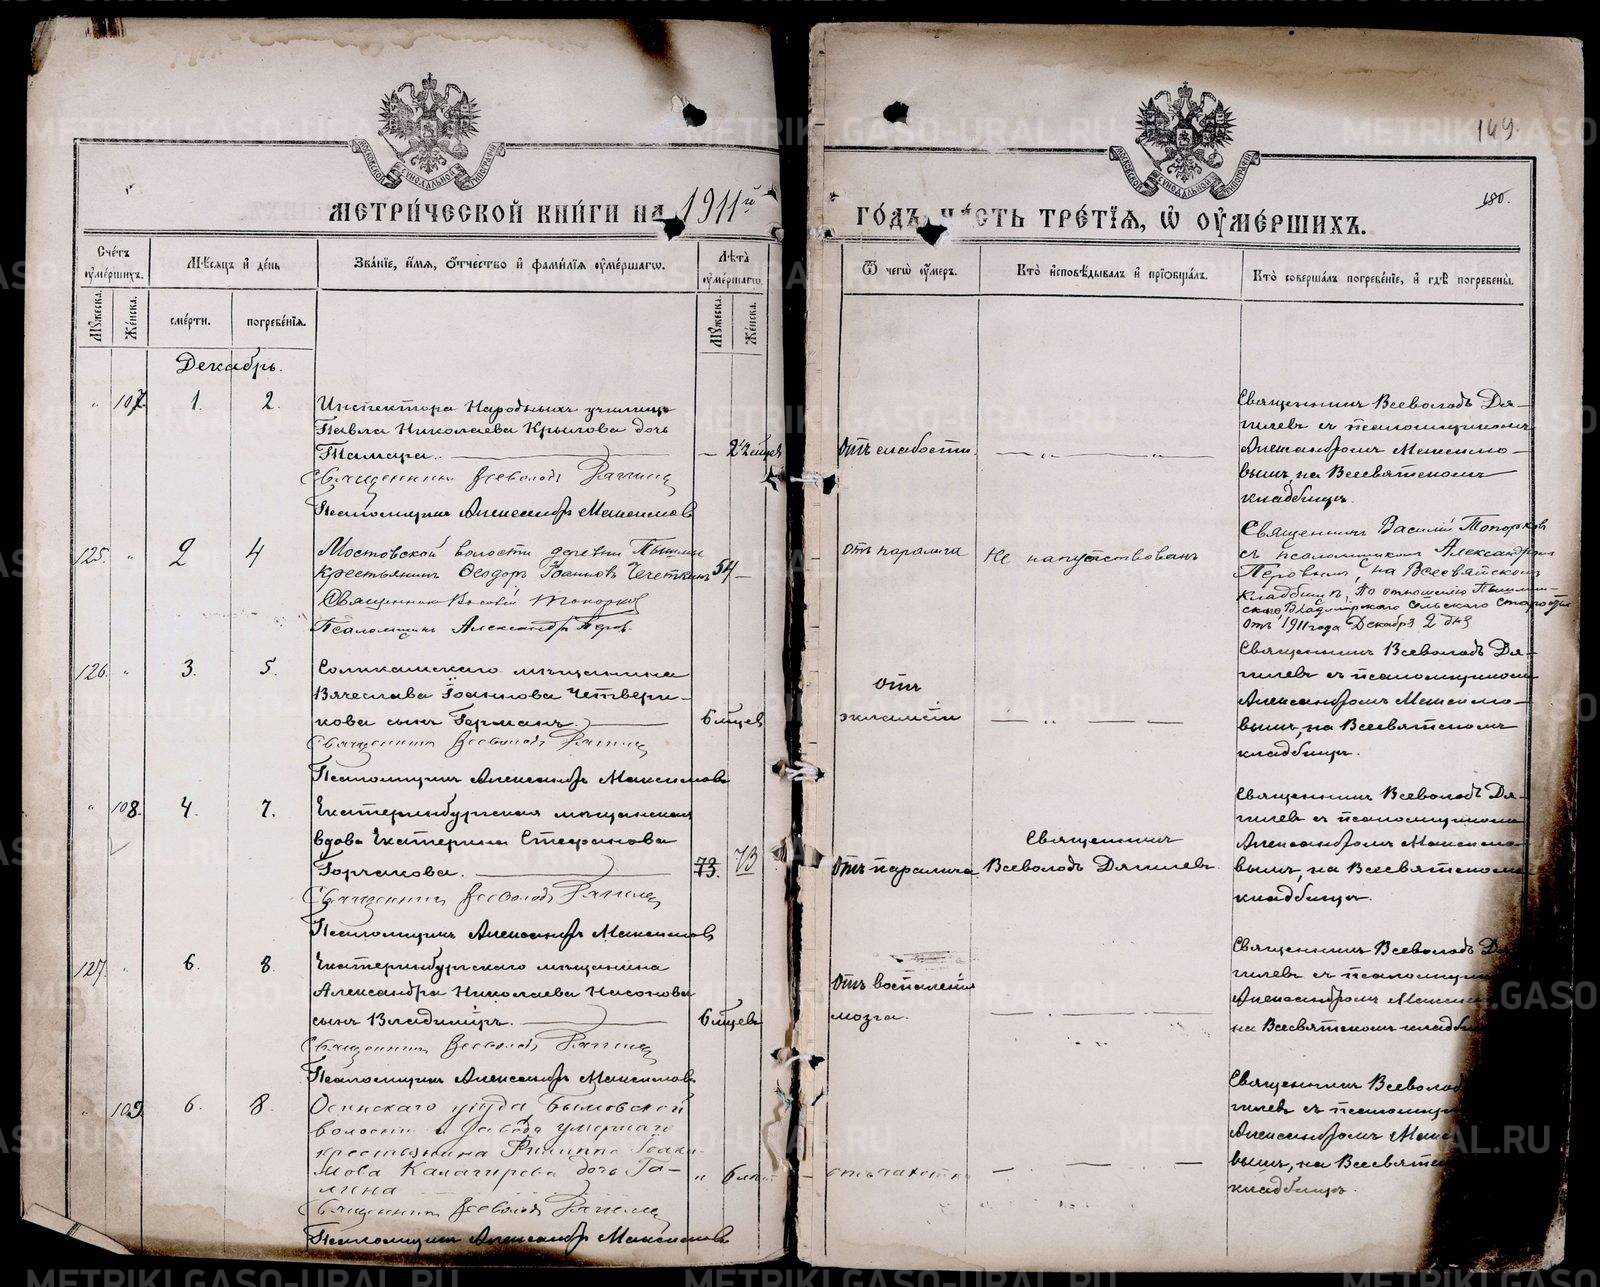 МЕТРИЧЕСКОЙ КНИГИ НА 1911й
ГОДЪ ЧАСТЬ ТРЕТІЯ, Ѽ ОУМЕРШИХЪ.
149.
180.
МОСКОВСКОЙ СѴНОДАЛЬНОЙ ТИПОГРАФІИ
МОСКОВСКОЙ СѴНОДАЛЬНОЙ ТИПОГРАФІИ
Счетъ оумершихъ.
Мѣсяцъ и день
Званіе, имя, отчество и фамилія оумершагѡ.
Лѣта оумершагѡ.
Ѿ чегѡ оумеръ.
Кто исповѣдывалъ и пріобщалъ.
Кто совершалъ погребеніе, и гдѣ погребены.
Мужеска.
Женска.
смерти.
погребенія.
Мужеска.
Женска.
Декабрь.
" 107. 1. 2.
Инспектора Народныхъ училищъ
Павла Николаева Крылова дочь
Тамара.
Священникъ Всеволодъ Дягилевъ
Псаломщикъ Александръ Максимовъ
Отъ слабости.
Священникъ Всеволодъ Дя-
гилевъ съ псаломщикомъ
Александромъ Максимо-
вымъ, на Всесвятскомъ
кладбищѣ.
125. " 2 4
Мостовской волости деревни Пышмы
крестьянинъ Ѳеодоръ Іоанновъ Чечеткинъ 54
Священникъ Василій Топорковъ
Псаломщикъ Александръ Перовъ
отъ паралича
Не напутствованъ
Священникъ Василій Топорковъ
съ псаломщикомъ Александромъ
Перовымъ, на Всесвятскомъ
кладбищѣ, По отношенію Пышмин-
скаго Владимірскаго сельскаго старосты
отъ 1911 года Декабря 2 дня
126. " 3. 5.
Соликамскаго мѣщанина
Вячеслава Іоаннова Четвери-
кова сынъ Германъ. 6 мѣцев
Священникъ Всеволодъ Дягилевъ
Псаломщикъ Александръ Максимовъ
Отъ
экламсіи
Священникъ Всеволодъ Дя-
гилевъ съ псаломщикомъ
Александромъ Максимо-
вымъ, на Всесвятскомъ
кладбищѣ.
" 108. 4. 7.
Екатеринбургская мѣщанская
вдова Екатерина Стефанова
Горчакова. 73. 73
Священникъ Всеволодъ Дягилевъ
Псаломщикъ Александръ Максимовъ
Отъ паралича
Священникъ
Всеволодъ Дягилевъ
Священникъ Всеволодъ Дя-
гилевъ съ псаломщикомъ
Александромъ Максимо-
вымъ, на Всесвятскомъ
кладбищѣ.
127. " 6. 8.
Екатеринбургскаго мѣщанина
Александра Николаева Насонова
сынъ Владиміръ. 6 мѣцевъ
Священникъ Всеволодъ Дягилевъ
Псаломщикъ Александръ Максимовъ
Отъ воспаленія
мозга.
Священникъ Всеволодъ Дя-
гилевъ съ псаломщик
Александромъ Максим
на Всесвятскомъ кладби
" 109 6. 8.
Осинскаго уѣзда Бымовской
волости и завода умершаго
крестьянина Филиппа
дочь Га-
лина " 6
Священникъ Всеволодъ Дягилевъ
Псаломщикъ Александръ Максимовъ
Священникъ Всеволод
гилевъ съ псаломщик
Александромъ Макси
вымъ, на Всесвятск
кладбищѣ.
METRIKI.GASO-URAL.RU